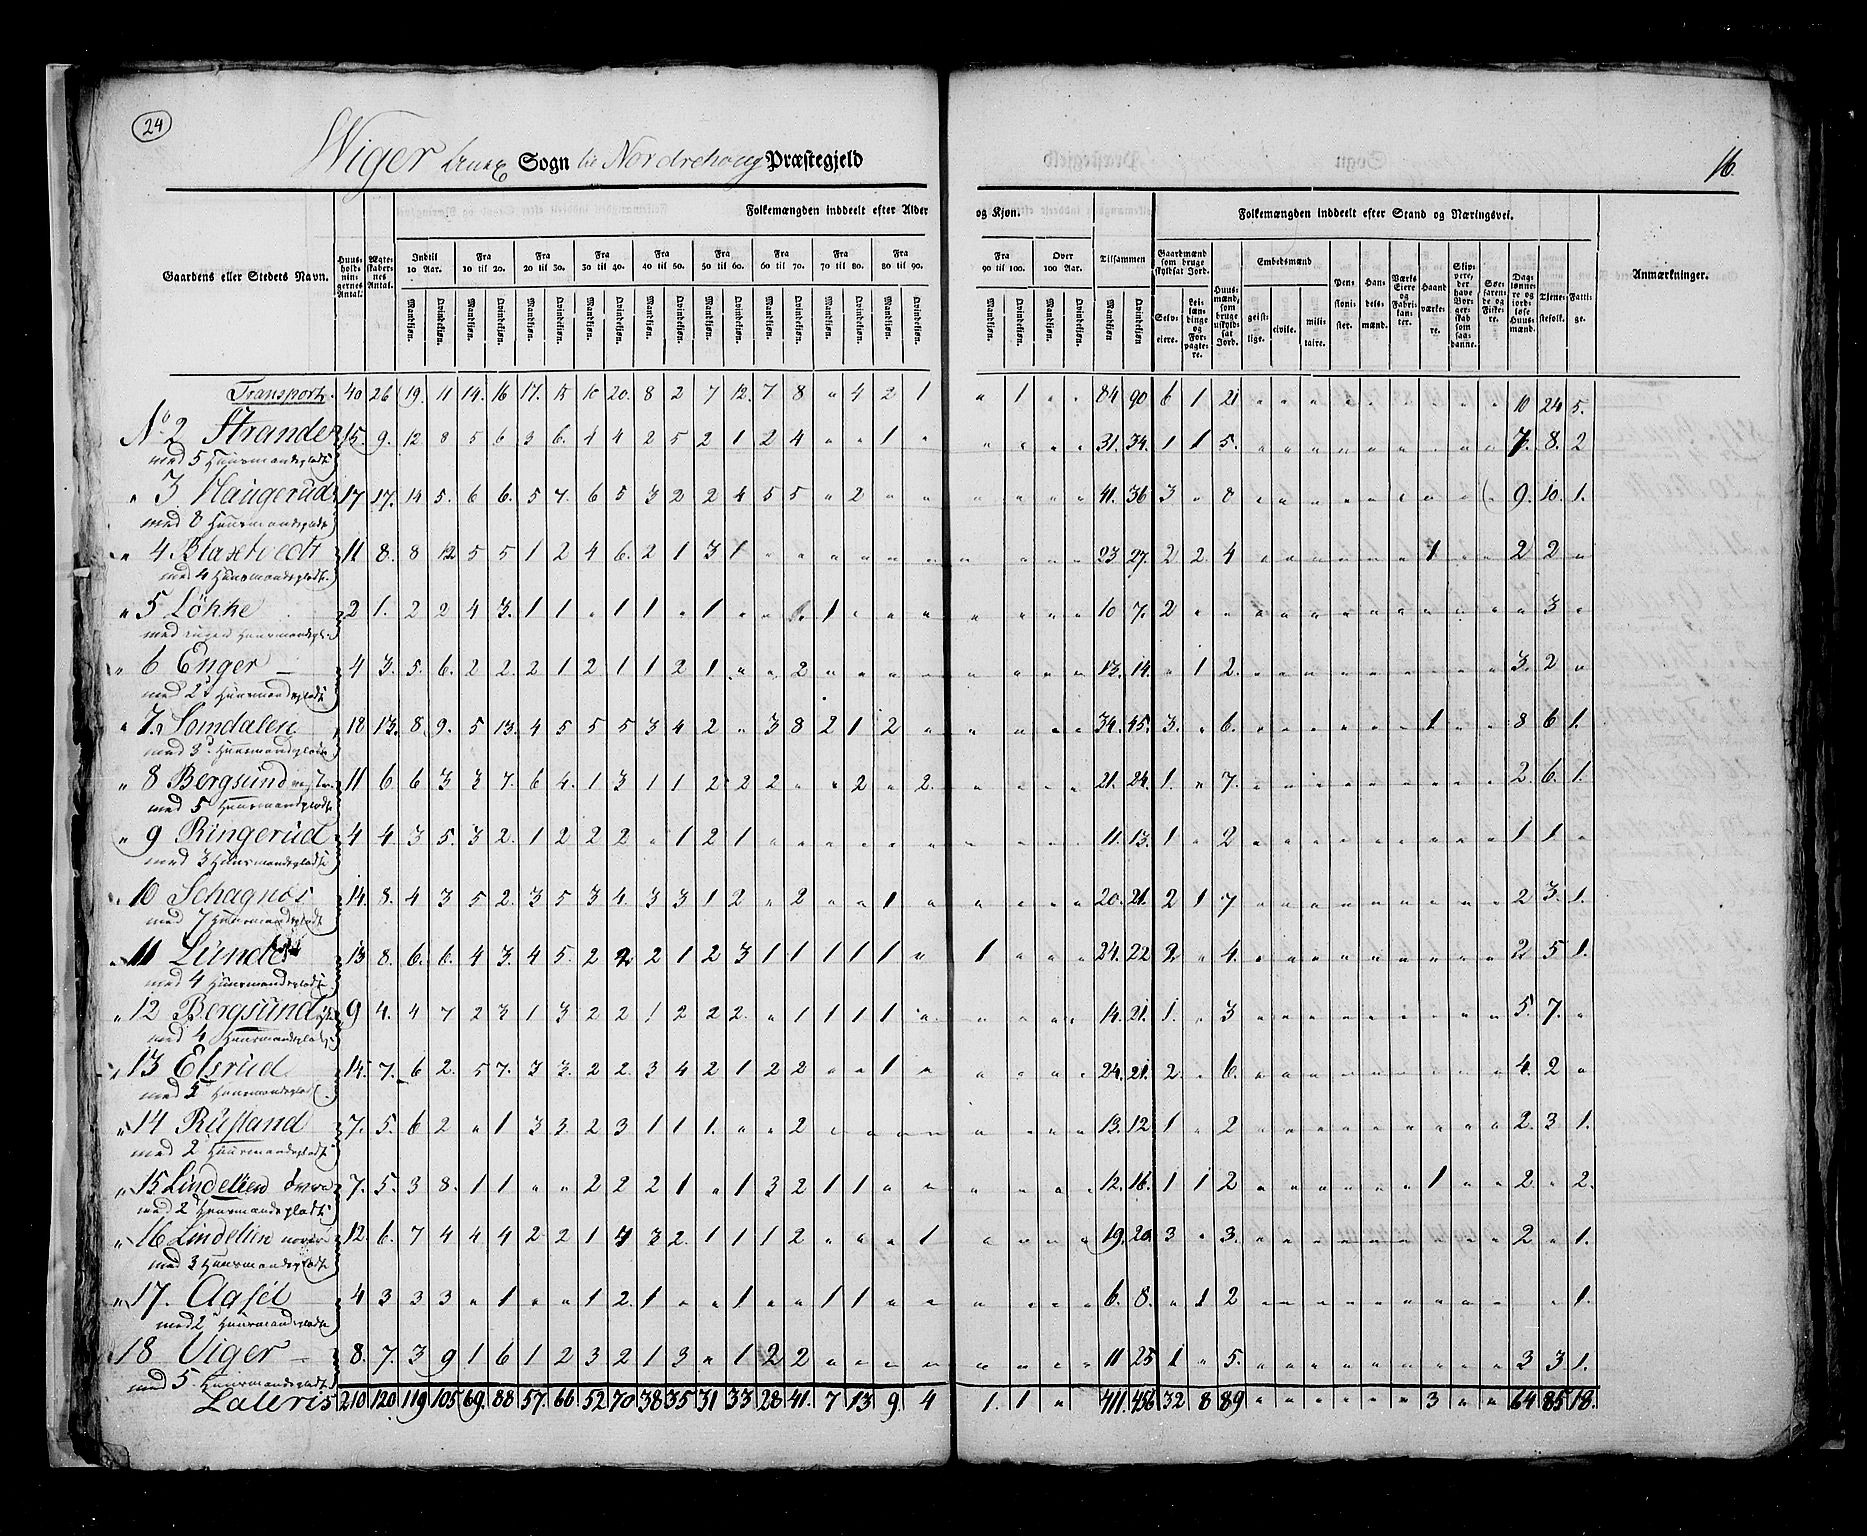 24
Wiger Sogn til Nordrehoug Præstegjeld
16.
Gaardens eller Stedets Navn.
Huusholdningernes Antal.
Ægteskabernes Antal.
Folkemængden inddeelt efter Alder og Kjøn.
Indtil 10 Aar. Fra 10 til 20. Fra 20 til 30. Fra 30 til 40. Fra 40 til 50. Fra 50 til 60. Fra 60 til 70. Fra 70 til 80. Fra 80 til 90. Fra 90 til 100. Over 100 Aar. Tilsammen
Mandkjøn. Qvindekjøn.
Folkemængden inddeelt efter Stand og Næringsvei.
Gaardmænd som bruge skyldsat Jord.
Selveiere. Leilændinge og Forpagtere.
Huusmænd, som bruge uskyldsat Jord.
Embedsmænd
geistlige. civile. militaire.
Pensionister. Handelsmænd. Værks Eiere og Fabrikanter. Haandværkere.
Søefarende og Fiskere.
Daglønnere og jordløse Huusmænd. Tjenestefolk. Fattige.
Anmærkninger.
Transport. 40 26 19. 11 14. 16 17. 15 10 20. 8 2 7 12. 7 8 " 4 2 1 " 1 " " 84 90 6 1 21 " " " " " " " " " 10 24 5.
No 2 Strande 15. 9. 12 8 5 6 3 6. 4 4 2 5 2 1 2 4 " " 1 " " " " " 31. 34. 1 1 5. " " " " " " " " " 7. 8. 2
med 5 Huusmandspladse
" 3 Haugerud 17 17. 14 5. 6 6. 5 7. 6 5 3 2 2 4 5 5 " 2 " " " " " " 41. 36 3 " 8 " " " " " " " " 9. 10. 1.
med 8 Huusmandspladse
" 4 Blaxetvedt 11 8. 8 12 5 5 1 2 4 6. 2 1 3 1 " " " " " " " " " " 23. 27. 2 2. 4 " " " " " " 1 " " 2 2 "
med 4 Huusmandspladse.
" 5 Løkke 2 1. 2 2 4 3. 1 1 " 1 1 " 1 " " 1. 1 " " " " " " " 10 7. 2 " " " " " " " " " " " " 3 "
med ingen Huusmandspl.
" 6 Enger 4 3. 5. 6. 2 2. 2 1 2 1 1 2 1 " " 2 " " " " " " " " 13. 14. " 1 2. " " " " " " " " " 3. 2 "
med 2 Huusmandspladse
" 7. Somdalen 18 13. 8 9. 5 13. 4 5 5 5 3 4 2 " 3 8 2 1 2 " " " " " 34. 45. 3. " 6. " " " " " " 1 " " 8 6 1.
med 3 Huusmandspladse
" 8 Bergsund 11 6 6 3 3 7. 6 4. 1 3 1 1 2 2 2 " " 2 " 2. " " " " 21. 24. 1. " 7. " " " " " " " " " 2. 6. 1.
med 5 Huusmandspladse
" 9 Ringerud 4 4. 3 5. 3 2. 1 2 2 2 " 1 2 1 " " " " " " " " " " 11. 13. 1 " 2 " " " " " " " " " 1 1 "
med 3 Huusmandspladse
" 10 Schagnæs 14. 8. 4 3 5 2. 3 5 3 4. 3 3 1 2 " 2 " " 1 " " " " " 20. 21. 2 1 7 " " " " " " " " " 2 3. 1.
med 7 Huusmandspladse
" 11 Lunde 13 8. 6. 6. 4 3. 4 5. 2 2 2 1 2 3 1 1 1 1 1 " 1 " " " 24. 22 2. " 4. " " " " " " " " " 2 5 1.
med 4 Huusmandspladse
" 12 Bergsund 9 4. 4 7 2 3 1 3 2 2 1 2 2 2. " 1 1 1 1 " " " " " 14. 21. 1. " 3 " " " " " " " " " 5. 7. "
med 4 Huusmandspladse
" 13 Elsrud 14. 7. 6 2. 5 7. 3 3. 2 2. 3 4 2 1 2 2 " " 1 " " " " " 24. 21. 2. " 6. " " " " " " " " " 4. 2 "
med 5 Huusmandspladse
" 14 Rusland 7. 5. 6 2 " 1 3 3. 2 3 1 1 1. " " 2 " " " " " " " " 13. 12 1 " 2 " " " " " " " " " 2. 3 1.
med 2 Huusmandspladse
" 15 Lindelien 7. 5. 3 8. 1 1 " " 2 2 2 1 " 1 3 2 1 1 " " " " " " 12. 16. 1 1 2 " " " " " " 1 " " 2 " 2.
med 2 Huusmandspladse
" 16 Lindelien 12. 6. 7 4 4 4 2 2 1 4 3 2. 1 1 1 2 " " " 1 " " " " 19. 20. 3 " 3. " " " " " " " " " 2 " 1.
med 3 Huusmandspladse
" 17. 4 3 3 3 " 1 " " 1 2. 1 " " 1 " " 1 1 " " " " " " 6. 8. " 1 2 " " " " " " " " 1.
med 2 Huusmandspladse
" 18 Viger 8. 7. 3 9 1 6 1 2 3 2 1 3 " 1 2 2 " " " " " " " " 11 25 1 " 5. " " " " " " " " " 3 3 1.
med 5 Huusmandspladse
Lateris 210 120 119 105 69. 88 57. 66 52 70 38 35 31 33 28 41. 7 13 9. 4 1. 1 " 411. 456 32 8 89 " " " " " " 3 " " 64 85 18.